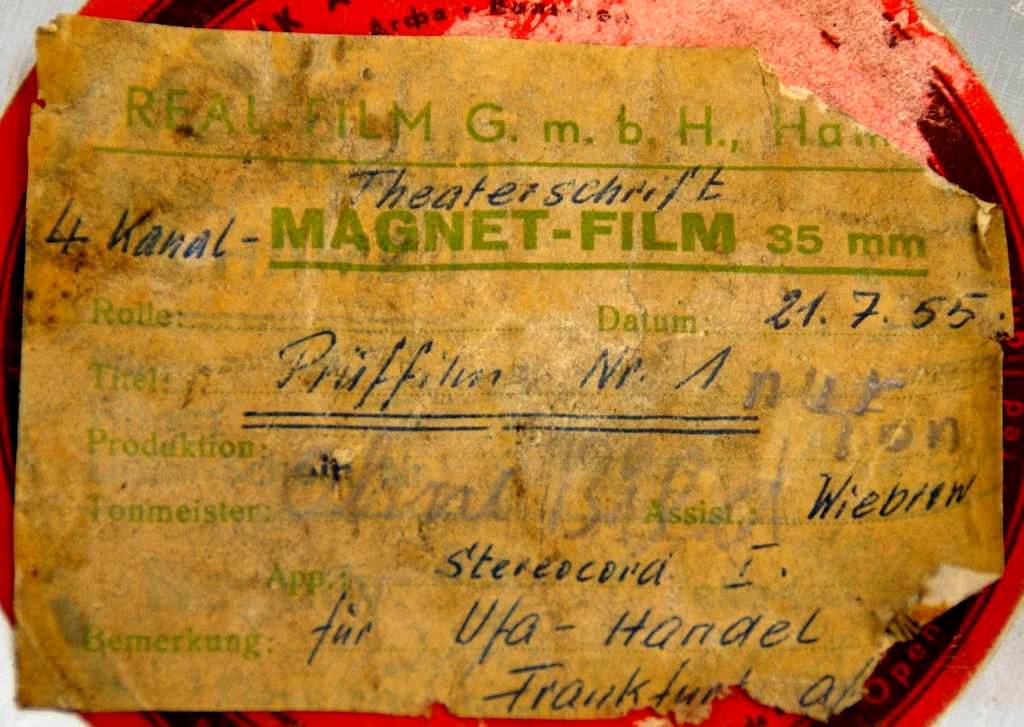 REAL-FILM G. m. b. H., Ham
Theaterschrift
4 Kanal- MAGNET-FILM 35 mm
Rolle: Datum: 21. 7. 55.
Titel: Prüffilm Nr. 1 nur
Produktion: Ton
Tonmeister: Assist.: Wiebrow
App.: Stereocord I.
Bemerkung: für Ufa-Handel
Frankfurt a/
Open